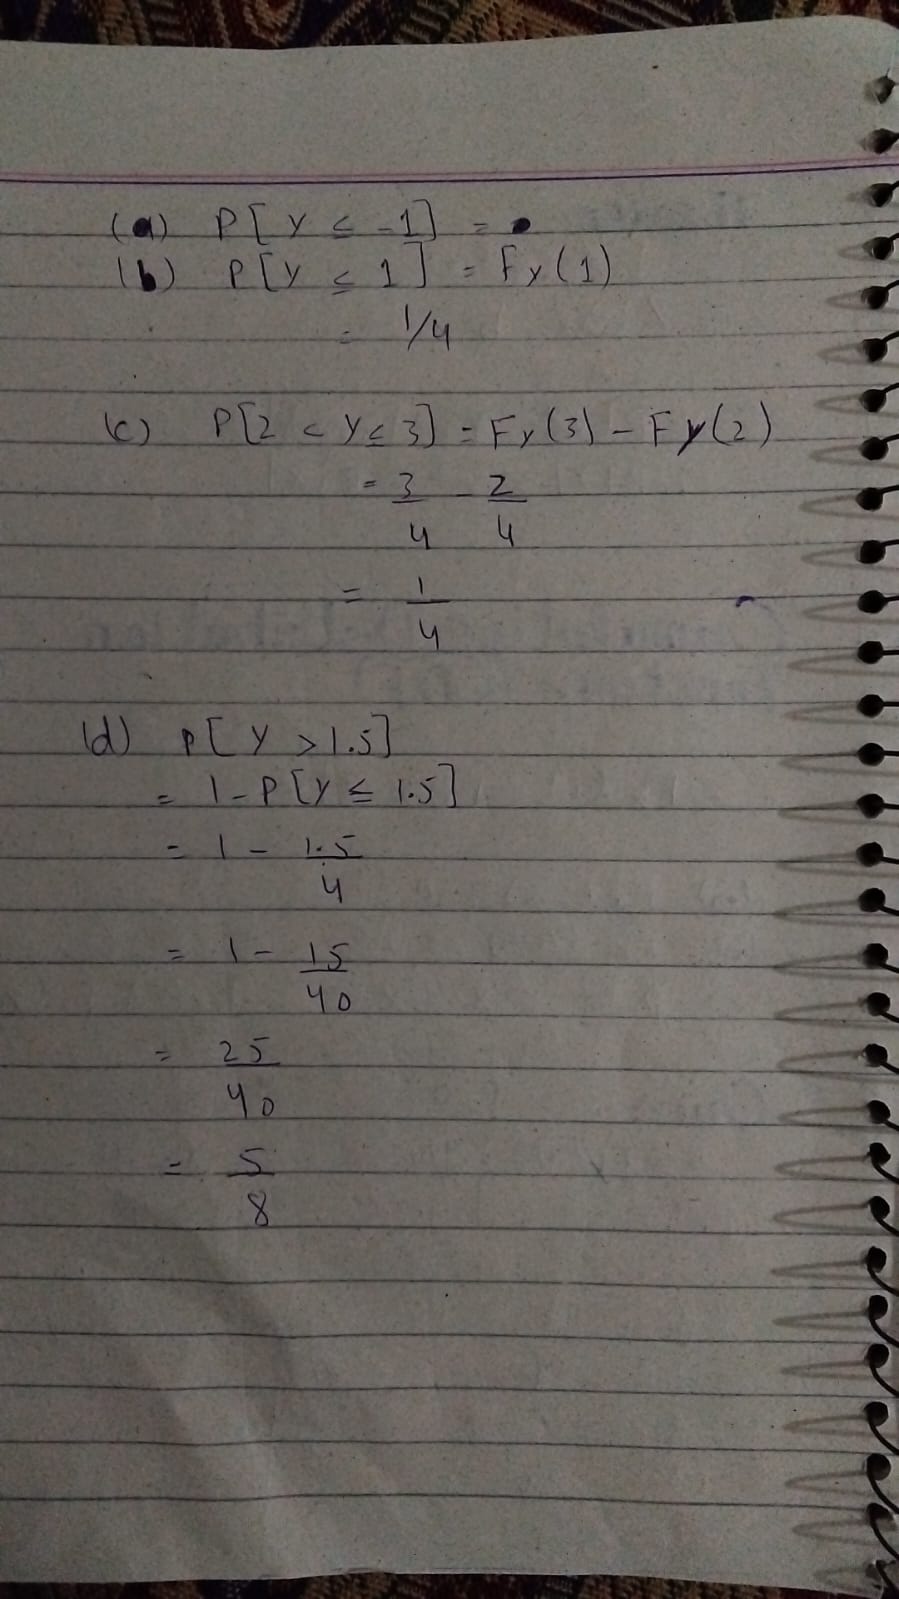 (a) P[Y ≤ -1] =
(b) P[Y ≤ 1] = Fy(1)
= 1/4
(c) P[2 < Y ≤ 3] = Fy(3) - Fy(2)
= 3/4 - 2/4
= 1/4
(d) P[Y > 1.5]
= 1 - P[Y ≤ 1.5]
= 1 - 1.5/4
= 1 - 15/40
= 25/40
= 5/8